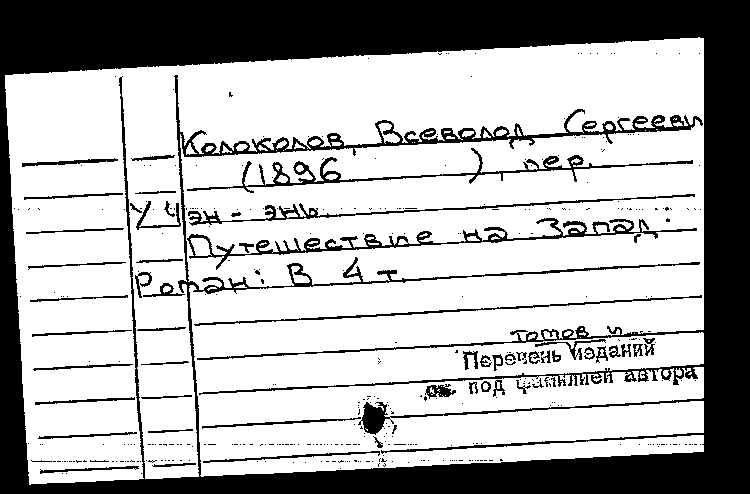 Колоколов, Всеволод Сергееви
(1896 ), пер.
У Чэн-энь.
Путешествие на Запад:
Роман: В 4 т.
томов и
Перечень изданий
см. под фамилией автора